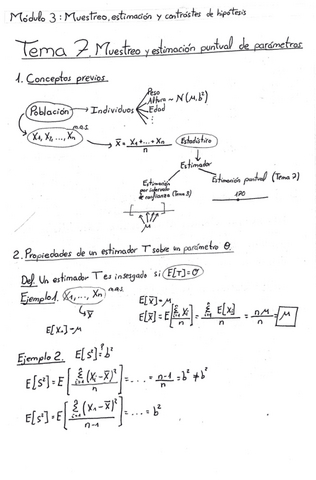 Módulo 3: Muestreo, estimación y contrastes de hipótesis
Tema 7. Muestreo y estimación puntual de parámetros
1. Conceptos previos.
Peso
Altura ~ N(μ, b²)
Población → Individuos Edad
m.a.s.
X₁, X₂, ..., Xₙ → X̄ = (X₁+...+Xₙ)/n Estadístico
Estimador
Estimación por intervalo de confianza
Estimación puntual (Tema 7)
170
[ ]
μ
2. Propiedades de un estimador T sobre un parámetro θ.
Def. Un estimador T es insesgado si E[T]=θ
Ejemplo 1. X₁, ..., Xₙ m.a.s. E[X̄]=μ
X̄
E[X̄] = E[∑ᵢ₌₁ⁿ Xᵢ / n] = ∑ᵢ₌₁ⁿ E[Xᵢ] / n = nμ/n = μ
E[Xₙ]=μ
Ejemplo 2. E[S²] ≟ b²
E[S²] = E[∑ᵢ₌₁ⁿ (Xᵢ-X̄)² / n] = ... = (n-1)/n = b² ≠ b²
E[S²] = E[∑ᵢ₌₁ⁿ (X₁-X̄)² / (n-1)] = ... = b²